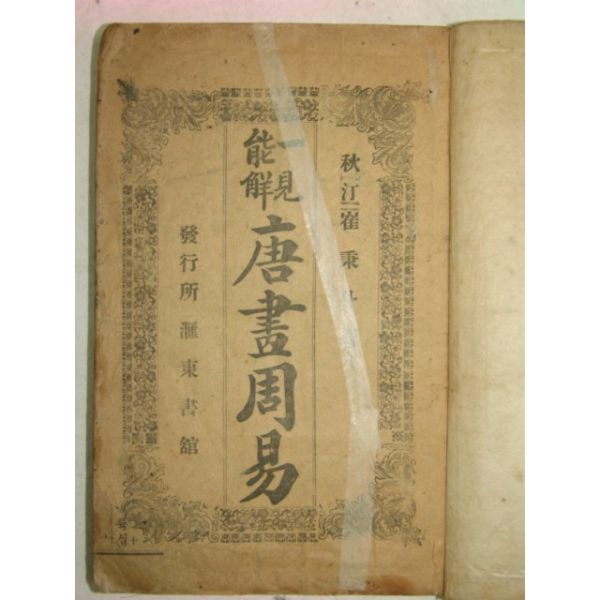 秋汀 崔秉
一見
能解
唐畫周易
發行所 滙東書館